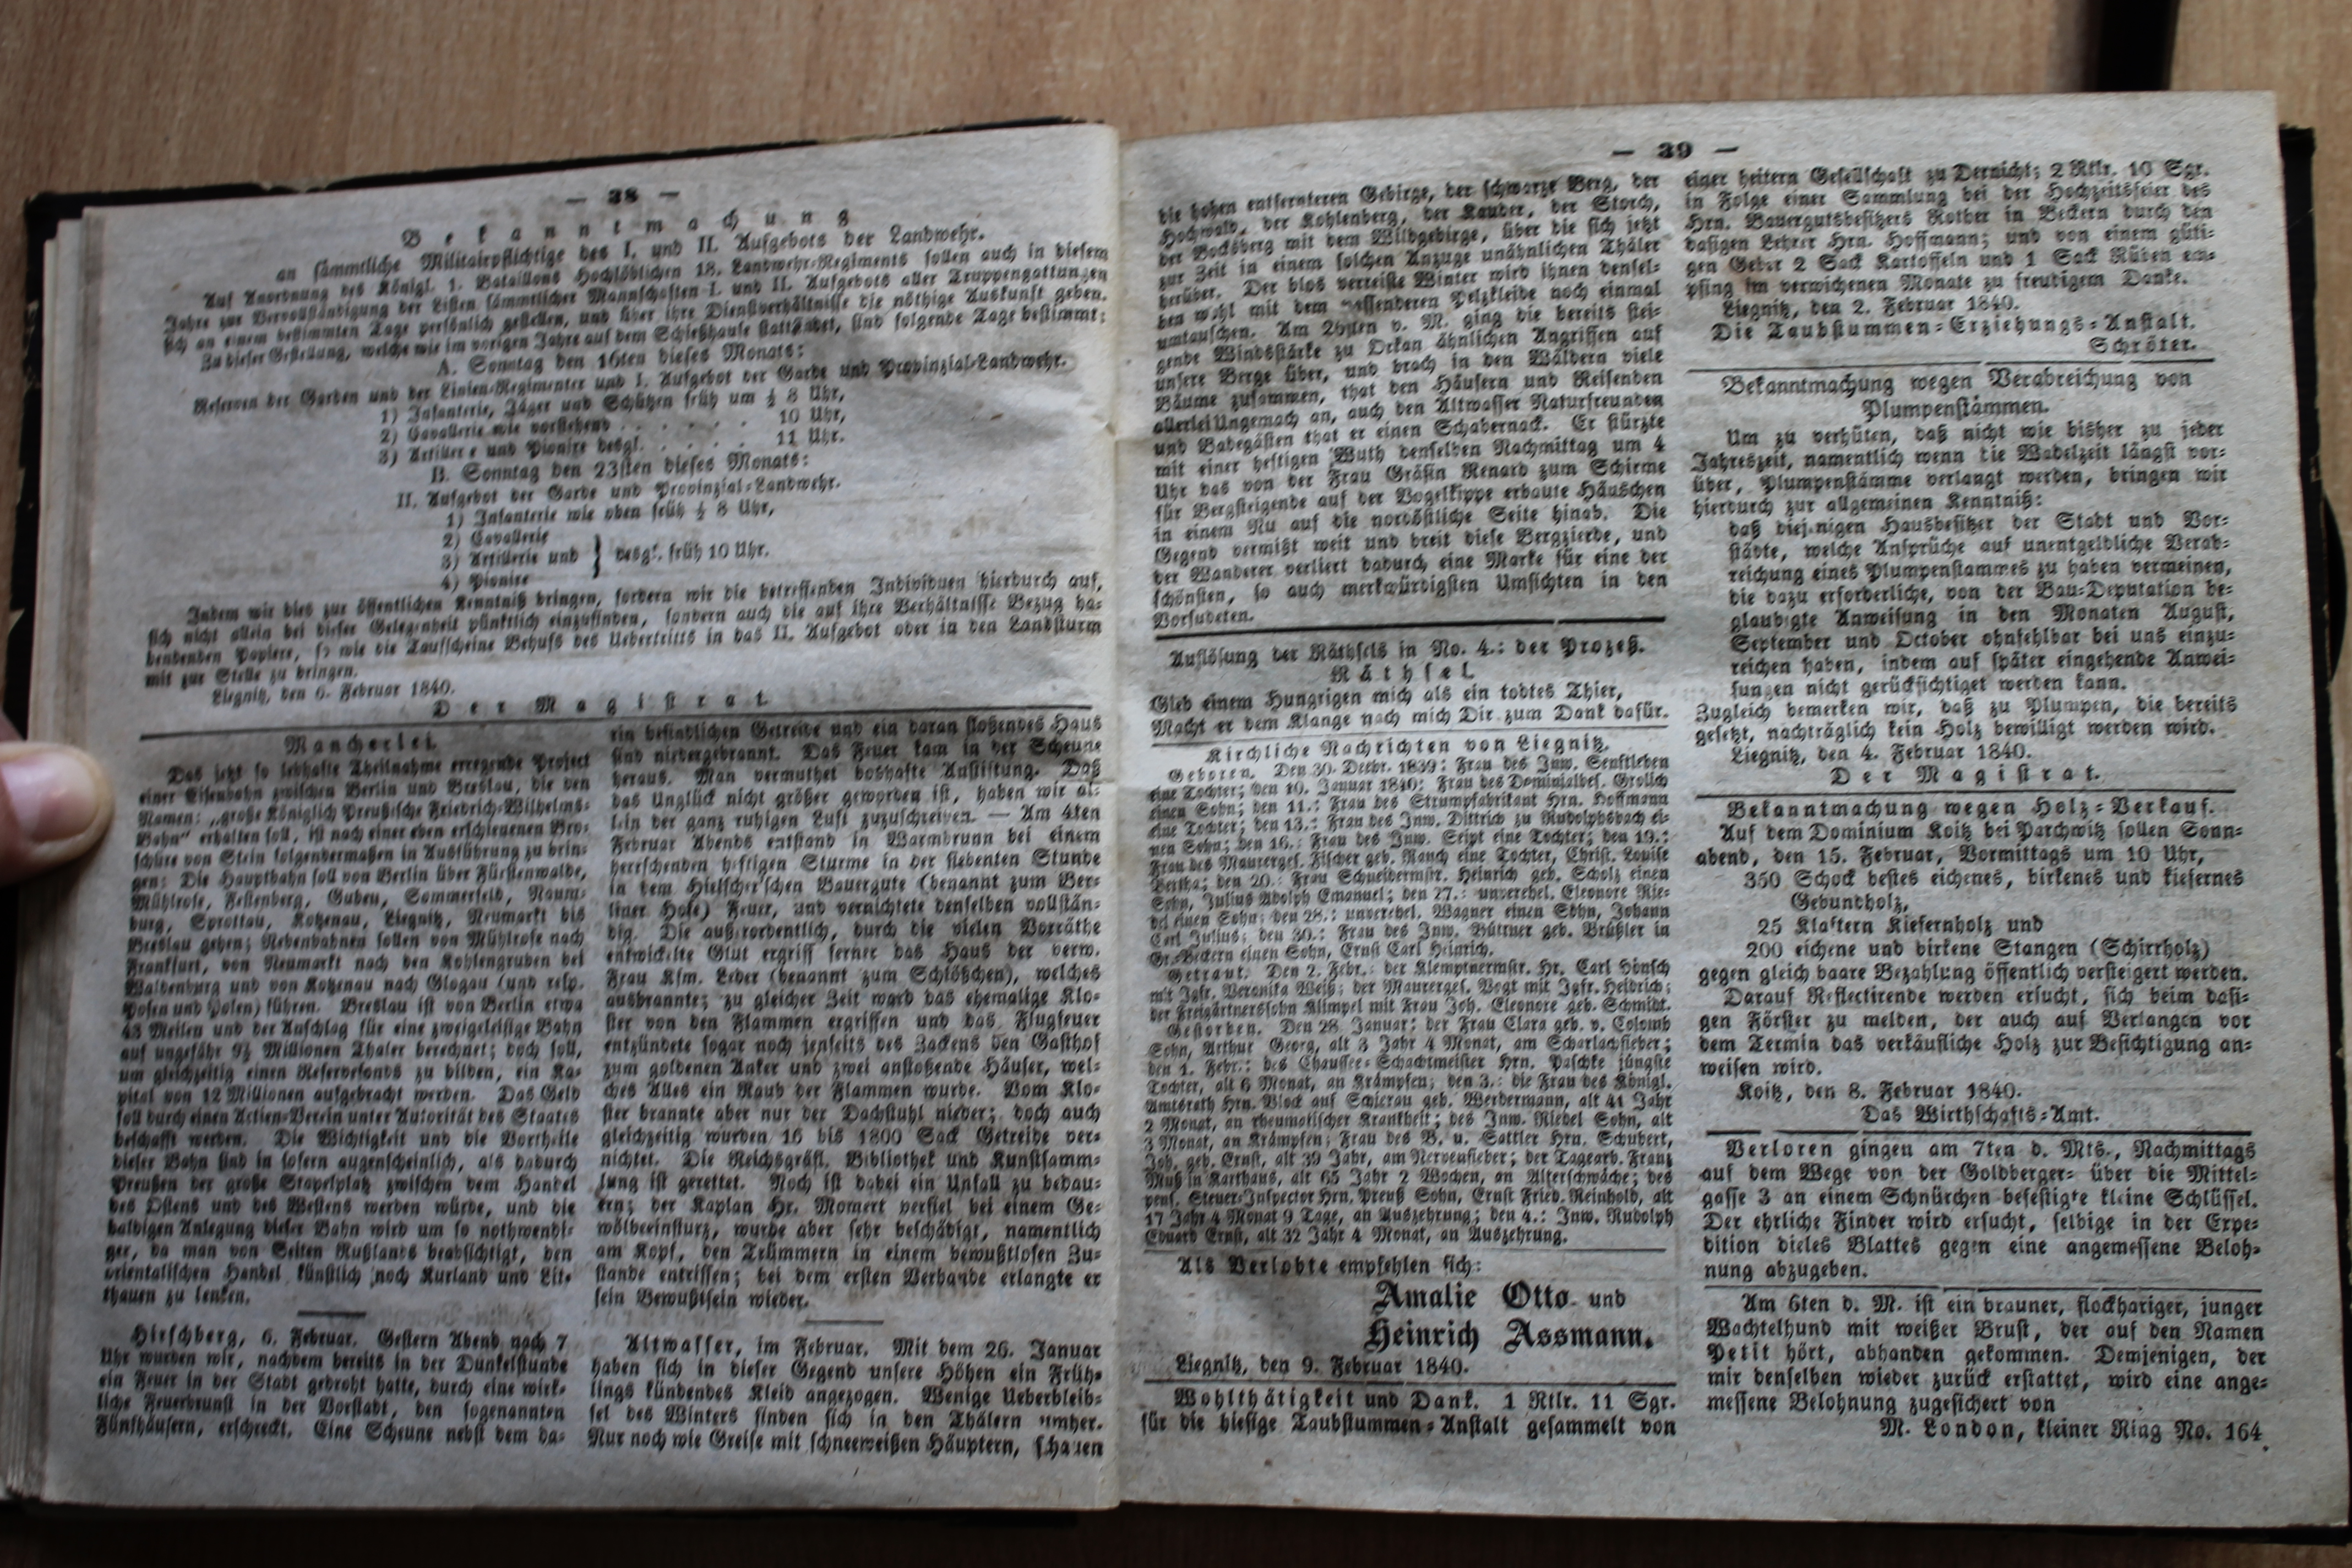 — 38 —
Bekanntmachung
an sämmtliche Militairpflichtige des I. und II. Aufgebots der Landwehr.
Auf Anordnung des Königl. 1. Bataillons Hochlöblichen 18. Landwehr-Regiments sollen auch in diesem
Jahre zur Vervollständigung der Listen sämmtlicher Mannschaften I. und II. Aufgebots aller Truppengattungen
sich an einem bestimmten Tage persönlich gestellen, und über ihre Dienstverhältnisse die nöthige Auskunft geben.
Zu dieser Gestellung, welche wie im vorigen Jahre auf dem Schießhause stattfindet, sind folgende Tage bestimmt:
A. Sonntag den 16ten dieses Monats:
Reserven der Garden und der Linien-Regimenter und I. Aufgebot der Garde und Provinzial-Landwehr.
1) Infanterie, Jäger und Schützen früh um ½ 8 Uhr,
2) Cavallerie wie vorstehend . . . . . . 10 Uhr,
3) Artillerie und Pionire desgl. . . . . . 11 Uhr.
B. Sonntag den 23sten dieses Monats:
II. Aufgebot der Garde und Provinzial-Landwehr.
1) Infanterie wie oben früh ½ 8 Uhr,
2) Cavallerie
3) Artillerie und } desgl. früh 10 Uhr.
4) Pionire
Indem wir dies zur öffentlichen Kenntniß bringen, fordern wir die betreffenden Individuen hierdurch auf,
sich nicht allein bei dieser Gelegenheit pünktlich einzufinden, sondern auch die auf ihre Verhältnisse Bezug ha-
bendenden Papiere, so wie die Taufscheine Behufs des Uebertritts in das II. Aufgebot oder in den Landsturm
mit zur Stelle zu bringen.
Liegnitz, den 6. Februar 1840.
Der Magistrat.
Mancherlei.
Das jetzt so lebhafte Theilnahme erregende Project
einer Eisenbahn zwischen Berlin und Breslau, die den
Namen: „große Königlich Preußische Friedrich-Wilhelms-
Bahn“ erhalten soll, ist nach einer eben erschienenen Bro-
schüre von Stein folgendermaßen in Ausführung zu brin-
gen: Die Hauptbahn soll von Berlin über Fürstenwalde,
Mühlrose, Fellenberg, Guben, Sommerfeld, Naum-
burg, Sprottau, Kotzenau, Liegnitz, Neumarkt bis
Breslau gehen; Nebenbahnen sollen von Mühlrose nach
Frankfurt, von Neumarkt nach den Kohlengruben bei
Waldenburg und von Kotzenau nach Glogau (und resp.
Posen und Polen) führen. Breslau ist von Berlin etwa
43 Meilen und der Anschlag für eine zweigeleisige Bahn
auf ungefähr 9½ Millionen Thaler berechnet; doch soll,
um gleichzeitig einen Reservefonds zu bilden, ein Ka-
pital von 12 Millionen aufgebracht werden. Das Geld
soll durch einen Actien-Verein unter Autorität des Staates
beschafft werden. Die Wichtigkeit und die Vortheile
dieser Bahn sind in sofern augenscheinlich, als dadurch
Preußen der große Stapelplatz zwischen dem Handel
des Ostens und des Westens werden würde, und die
baldigen Anlegung dieser Bahn wird um so nothwendi-
ger, da man von Seiten Rußlands beabsichtigt, den
orientalischen Handel künstlich nach Kurland und Lit-
thauen zu lenken.
Hirschberg, 6. Februar. Gestern Abend nach 7
Uhr wurden wir, nachdem bereits in der Dunkelstunde
ein Feuer in der Stadt gedroht hatte, durch eine wirk-
liche Feuerbrunst in der Vorstadt, den sogenannten
Fünfhäusern, erschreckt. Eine Scheune nebst dem da-
rin befindlichen Getreide und ein daran stoßendes Haus
sind niedergebrannt. Das Feuer kam in der Scheune
heraus. Man vermuthet boshafte Anstiftung. Daß
das Unglück nicht größer geworden ist, haben wir al-
lein der ganz ruhigen Luft zuzuschreiben. — Am 4ten
Februar Abends entstand in Warmbrunn bei einem
herrschenden heftigen Sturme in der siebenten Stunde
in dem Hielscher'schen Bauergute (benannt zum Ber-
liner Hofe) Feuer, und vernichtete denselben vollstän-
dig. Die außerordentlich, durch die vielen Vorräthe
entwickelte Glut ergriff ferner das Haus der verw.
Frau Kfm. Leder (benannt zum Schlößchen), welches
ausbrannte; zu gleicher Zeit ward das ehemalige Klo-
ster von den Flammen ergriffen und das Flugfeuer
entzündete sogar noch jenseits des Zackens den Gasthof
zum goldenen Anker und zwei anstoßende Häuser, wel-
ches Alles ein Raub der Flammen wurde. Vom Klo-
ster brannte aber nur der Dachstuhl nieder; doch auch
gleichzeitig wurden 16 bis 1800 Sack Getreide ver-
nichtet. Die Reichsgräfl. Bibliothek und Kunstsamm-
lung ist gerettet. Noch ist dabei ein Unfall zu bedau-
ern; der Kaplan Hr. Momert verfiel bei einem Ge-
wölbeeinsturz, wurde aber sehr beschädigt, namentlich
am Kopf, den Trümmern in einem bewußtlosen Zu-
stande entrissen; bei dem ersten Verbande erlangte er
sein Bewußtsein wieder.
Altwasser, im Februar. Mit dem 26. Januar
haben sich in dieser Gegend unsere Höhen ein Früh-
lings kündendes Kleid angezogen. Wenige Ueberbleib-
sel des Winters finden sich in den Thälern umher.
Nur noch wie Greise mit schneeweißen Häuptern, schauen
— 39 —
die hohen entfernteren Gebirge, der schwarze Berg, der
Hochwald, der Kohlenberg, der Kauder, der Storch,
der Bocksberg mit dem Wildgebirge, über die sich jetzt
zur Zeit in einem solchen Anzuge unähnlichen Thäler
herüber. Der blos verreiste Winter wird ihnen densel-
ben wohl mit dem passenderen Pelzkleide noch einmal
umtauschen. Am 26sten v. M. ging die bereits stei-
gende Windsstärke zu Orkan ähnlichen Angriffen auf
unsere Berge über, und brach in den Wäldern viele
Bäume zusammen, that den Häusern und Reisenden
allerlei Ungemach an, auch den Altwasser Naturfreunden
und Badegästen that er einen Schabernack. Er stürzte
mit einer heftigen Wuth denselben Nachmittag um 4
Uhr das von der Frau Gräfin Renard zum Schirme
für Bergsteigende auf der Vogelkippe erbaute Häuschen
in einem Nu auf die nordöstliche Seite hinab. Die
Gegend vermißt weit und breit diese Bergzierde, und
der Wanderer verliert dadurch eine Marke für eine der
schönsten, so auch merkwürdigsten Umsichten in den
Vorsudeten.
Auflösung der Räthsels in No. 4.: der Prozeß.
Räthsel.
Gieb einem Hungrigen mich als ein todtes Thier,
Macht er dem Klange nach mich Dir zum Dank dafür.
Kirchliche Nachrichten von Liegnitz.
Geboren. Den 30. Decbr. 1839: Frau des Inw. Senftleben
eine Tochter; den 10. Januar 1840: Frau des Dominialbes. Grolich
einen Sohn; den 11.: Frau des Strumpfabrikant Hrn. Hoffmann
eine Tochter; den 13.: Frau des Inw. Dittrich zu Rudolphsbach ei-
nen Sohn; den 16.: Frau des Inw. Seipt eine Tochter; den 19.:
Frau des Maurerges. Fischer geb. Rauch eine Tochter, Christ. Louise
Bertha; den 20.: Frau Schneidermstr. Heinrich geb. Scholz einen
Sohn, Julius Adolph Emanuel; den 27.: unverehel. Eleonore Rie-
del einen Sohn; den 28.: unverehel. Wagner einen Sohn, Johann
Carl Julius; den 30.: Frau des Inw. Büttner geb. Brüßler in
Gr.-Beckern einen Sohn, Ernst Carl Heinrich.
Getraut. Den 2. Febr.: der Klemptnermstr. Hr. Carl Hönsch
mit Jgfr. Veronika Weiß; der Maurerges. Vogt mit Jgfr. Heidrich;
der Freigärtnerssohn Klimpel mit Frau Joh. Eleonore geb. Schmidt.
Gestorben. Den 28. Januar: der Frau Clara geb. v. Colomb
Sohn, Arthur Georg, alt 3 Jahr 4 Monat, am Scharlachfieber;
den 1. Febr.: des Chaussee-Schachtmeister Hrn. Paschke jüngste
Tochter, alt 6 Monat, an Krämpfen; den 3.: die Frau des Königl.
Amtsrath Hrn. Block auf Schierau geb. Werdermann, alt 41 Jahr
2 Monat, an rheumatischer Krankheit; des Inw. Riedel Sohn, alt
3 Monat, an Krämpfen; Frau des B. u. Sattler Hrn. Schubert,
Joh. geb. Ernst, alt 39 Jahr, am Nervenfieber; der Tagearb. Franz
Muß in Karthaus, alt 65 Jahr 2 Wochen, an Alterschwäche; des
pens. Steuer-Inspector Hrn. Preuß Sohn, Ernst Fried. Reinhold, alt
17 Jahr 4 Monat 9 Tage, an Auszehrung; den 4.: Inw. Rudolph
Eduard Ernst, alt 32 Jahr 4 Monat, an Auszehrung.
Als Verlobte empfehlen sich:
Amalie Otto und
Heinrich Assmann.
Liegnitz, den 9. Februar 1840.
Wohlthätigkeit und Dank. 1 Rtlr. 11 Sgr.
für die hiesige Taubstummen-Anstalt gesammelt von
einer heitern Gesellschaft zu Dernicht; 2 Rtlr. 10 Sgr.
in Folge einer Sammlung bei der Hochzeitsfeier des
Hrn. Bauergutsbesitzers Rother in Beckern durch den
dasigen Lehrer Hrn. Hoffmann; und von einem güti-
gen Geber 2 Sack Kartoffeln und 1 Sack Rüben em-
pfing im verwichenen Monate zu freudigem Danke.
Liegnitz, den 2. Februar 1840.
Die Taubstummen-Erziehungs-Anstalt.
Schröter.
Bekanntmachung wegen Verabreichung von
Plumpenstämmen.
Um zu verhüten, daß nicht wie bisher zu jeder
Jahreszeit, namentlich wenn die Wadelzeit längst vor-
über, Plumpenstämme verlangt werden, bringen wir
hierdurch zur allgemeinen Kenntniß:
daß diejenigen Hausbesitzer der Stadt und Vor-
städte, welche Ansprüche auf unentgeldliche Verab-
reichung eines Plumpenstammes zu haben vermeinen,
die dazu erforderliche, von der Bau-Deputation be-
glaubigte Anweisung in den Monaten August,
September und October ohnfehlbar bei uns einzu-
reichen haben, indem auf später eingehende Anwei-
sungen nicht gerücksichtiget werden kann.
Zugleich bemerken wir, daß zu Plumpen, die bereits
gesetzt, nachträglich kein Holz bewilligt werden wird.
Liegnitz, den 4. Februar 1840.
Der Magistrat.
Bekanntmachung wegen Holz-Verkauf.
Auf dem Dominium Koitz bei Parchwitz sollen Sonn-
abend, den 15. Februar, Vormittags um 10 Uhr,
350 Schock bestes eichenes, birkenes und kiefernes
Gebundholz,
25 Klaftern Kiefernholz und
200 eichene und birkene Stangen (Schirrholz)
gegen gleich baare Bezahlung öffentlich versteigert werden.
Darauf Reflectirende werden ersucht, sich beim dasi-
gen Förster zu melden, der auch auf Verlangen vor
dem Termin das verkäufliche Holz zur Besichtigung an-
weisen wird.
Koitz, den 8. Februar 1840.
Das Wirthschafts-Amt.
Verloren gingen am 7ten d. Mts., Nachmittags
auf dem Wege von der Goldberger- über die Mittel-
gasse 3 an einem Schnürchen befestigte kleine Schlüssel.
Der ehrliche Finder wird ersucht, selbige in der Expe-
dition dieses Blattes gegen eine angemessene Beloh-
nung abzugeben.
Am 6ten d. M. ist ein brauner, flockhariger, junger
Wachtelhund mit weißer Brust, der auf den Namen
Petit hört, abhanden gekommen. Demjenigen, der
mir denselben wieder zurück erstattet, wird eine ange-
messene Belohnung zugesichert von
M. London, kleiner Ring No. 164.